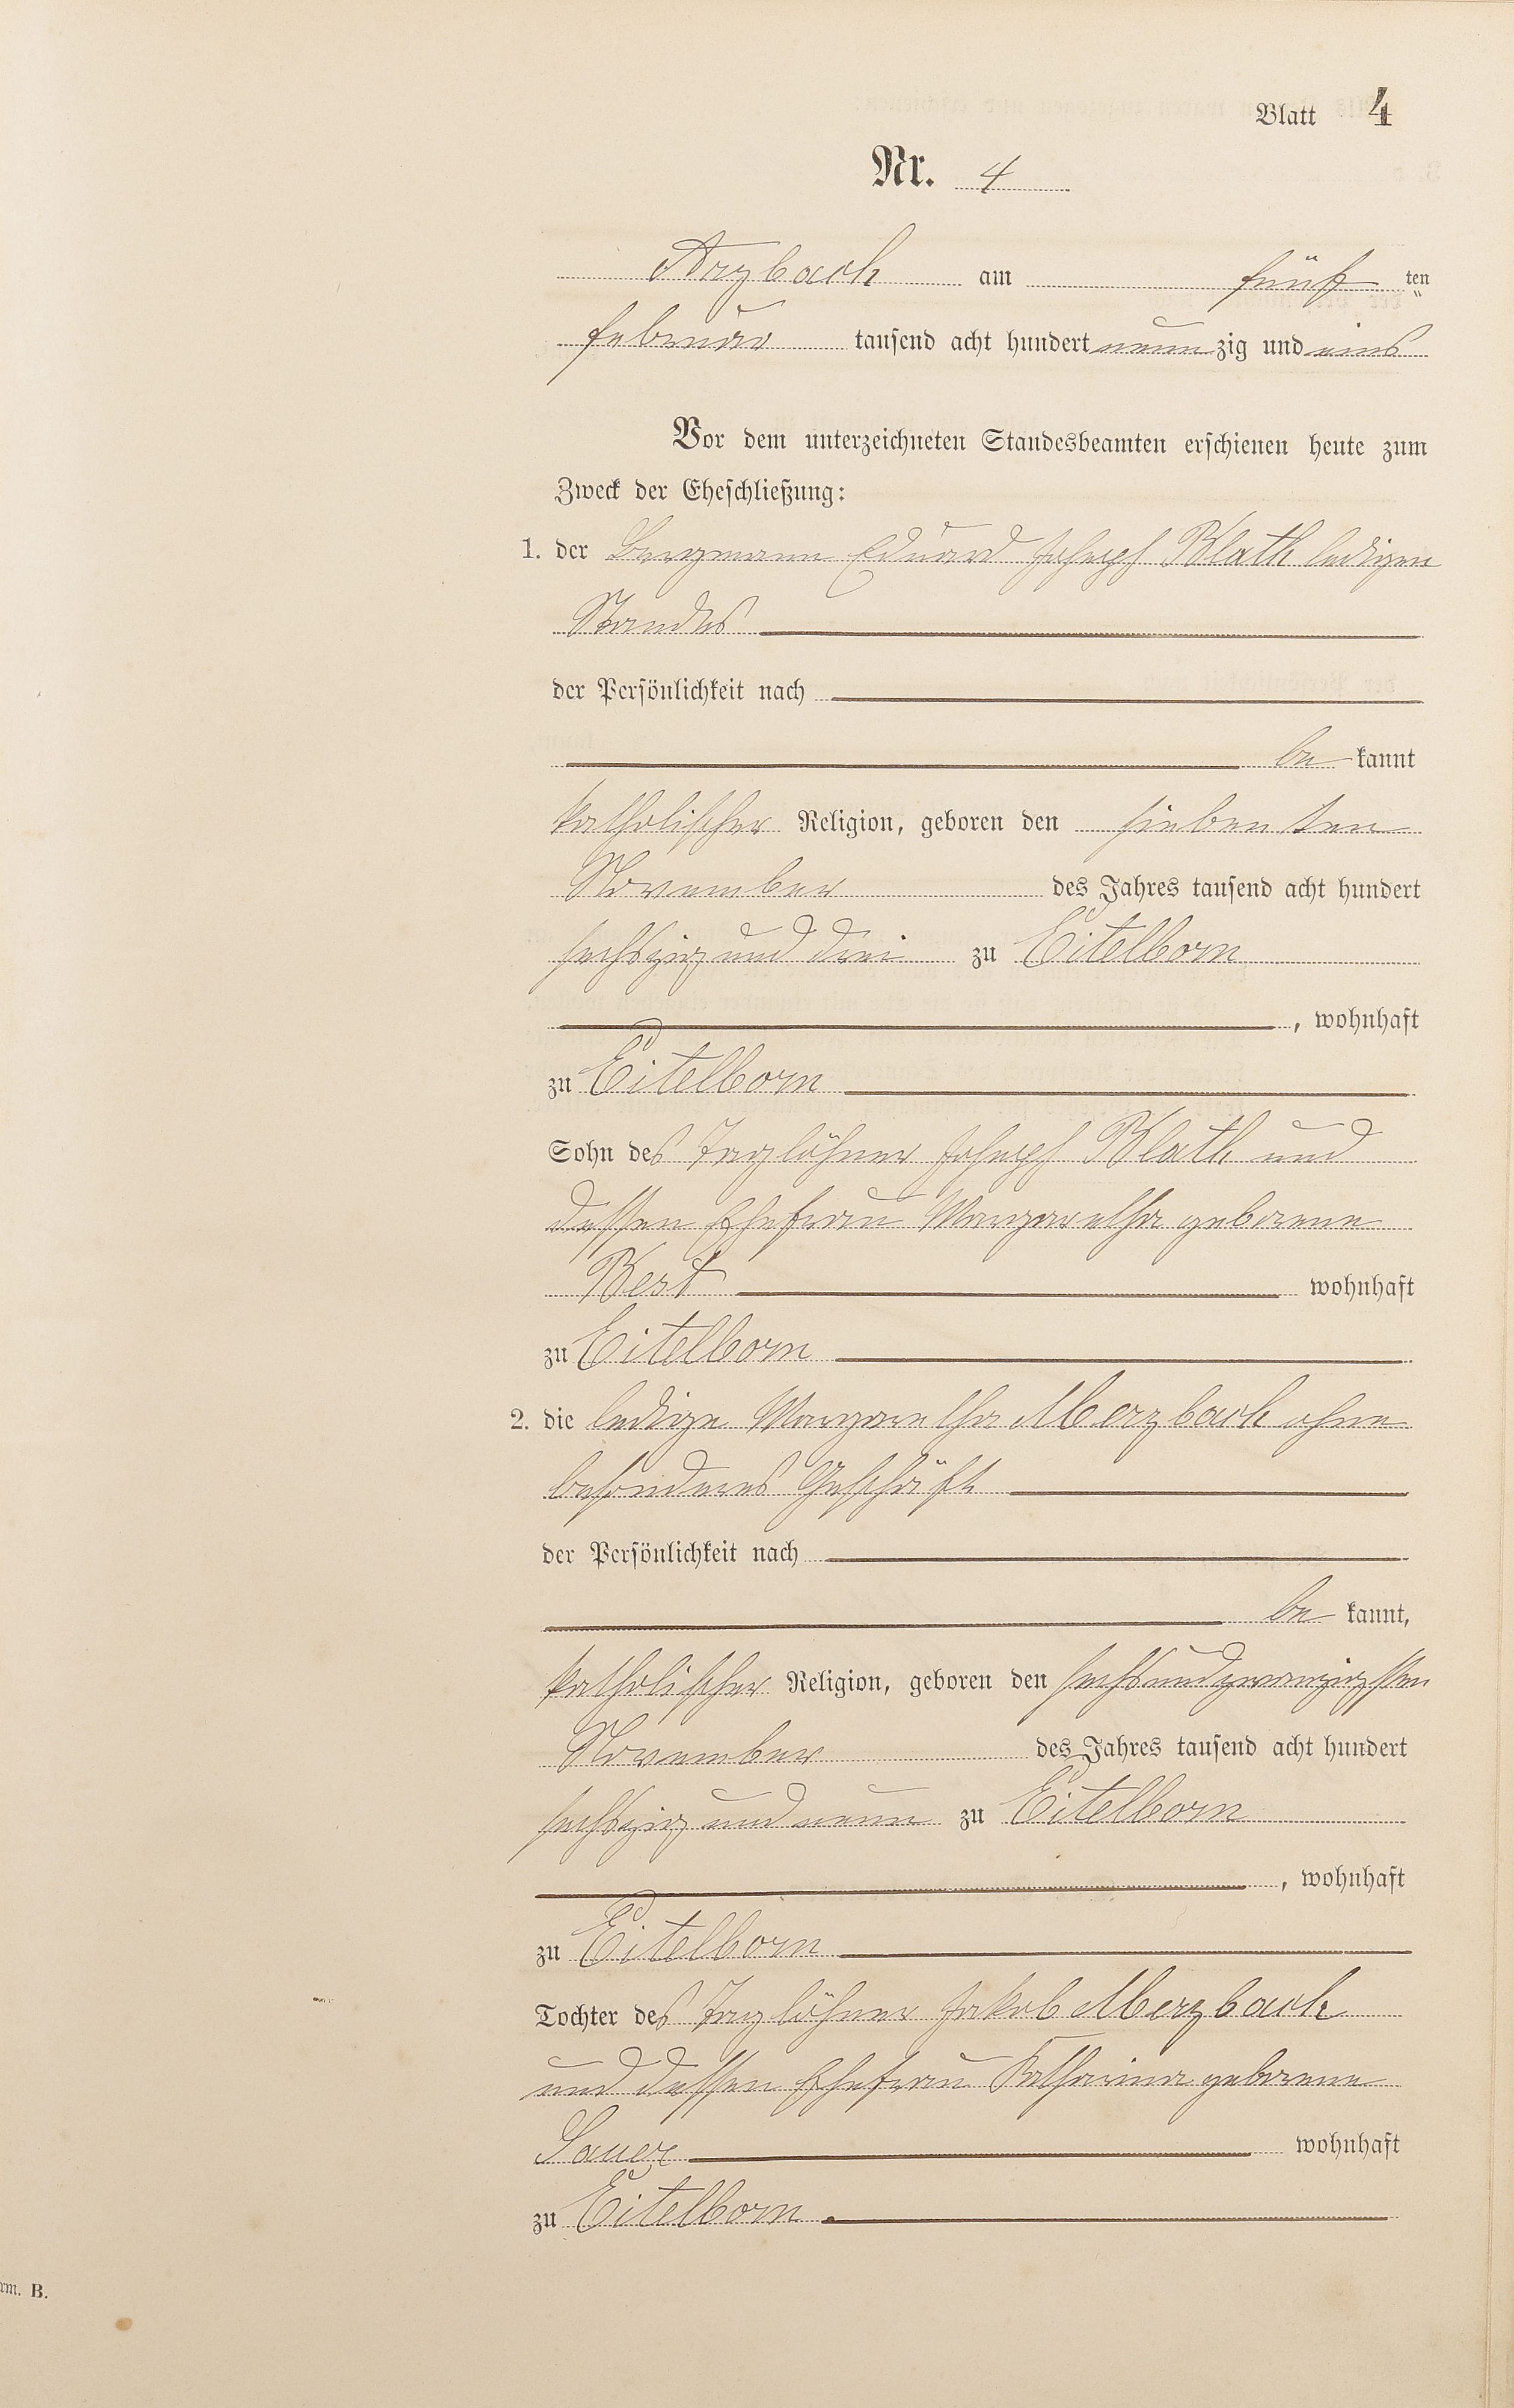 Blatt 4
Nr. 4
Arzbach am fünf ten
Februar tausend acht hundert neun zig und eins
Vor dem unterzeichneten Standesbeamten erschienen heute zum
Zweck der Eheschließung:
1. der Bergmann Eduard Joseph Klath ledigen
Standes
der Persönlichkeit nach
be kannt
katholischer Religion, geboren den siebenten
November des Jahres tausend acht hundert
sechszig und drei zu Eitelborn
, wohnhaft
zu Eitelborn
Sohn des Taglöhner Joseph Klath und
dessen Ehefrau Margaretha geborene
wohnhaft
zu Eitelborn
2. die ledige Margaretha Merzbach ohne
besonderes Geschäft
der Persönlichkeit nach
be kannt,
katholischer Religion, geboren den sechsundzwanzigsten
November des Jahres tausend acht hundert
sechszig und neun zu Eitelborn
, wohnhaft
zu Eitelborn
Tochter des Taglöhner Jakob Merzbach
und dessen Ehefrau Katharina geborene
Sauer wohnhaft
zu Eitelborn.
rm. B.